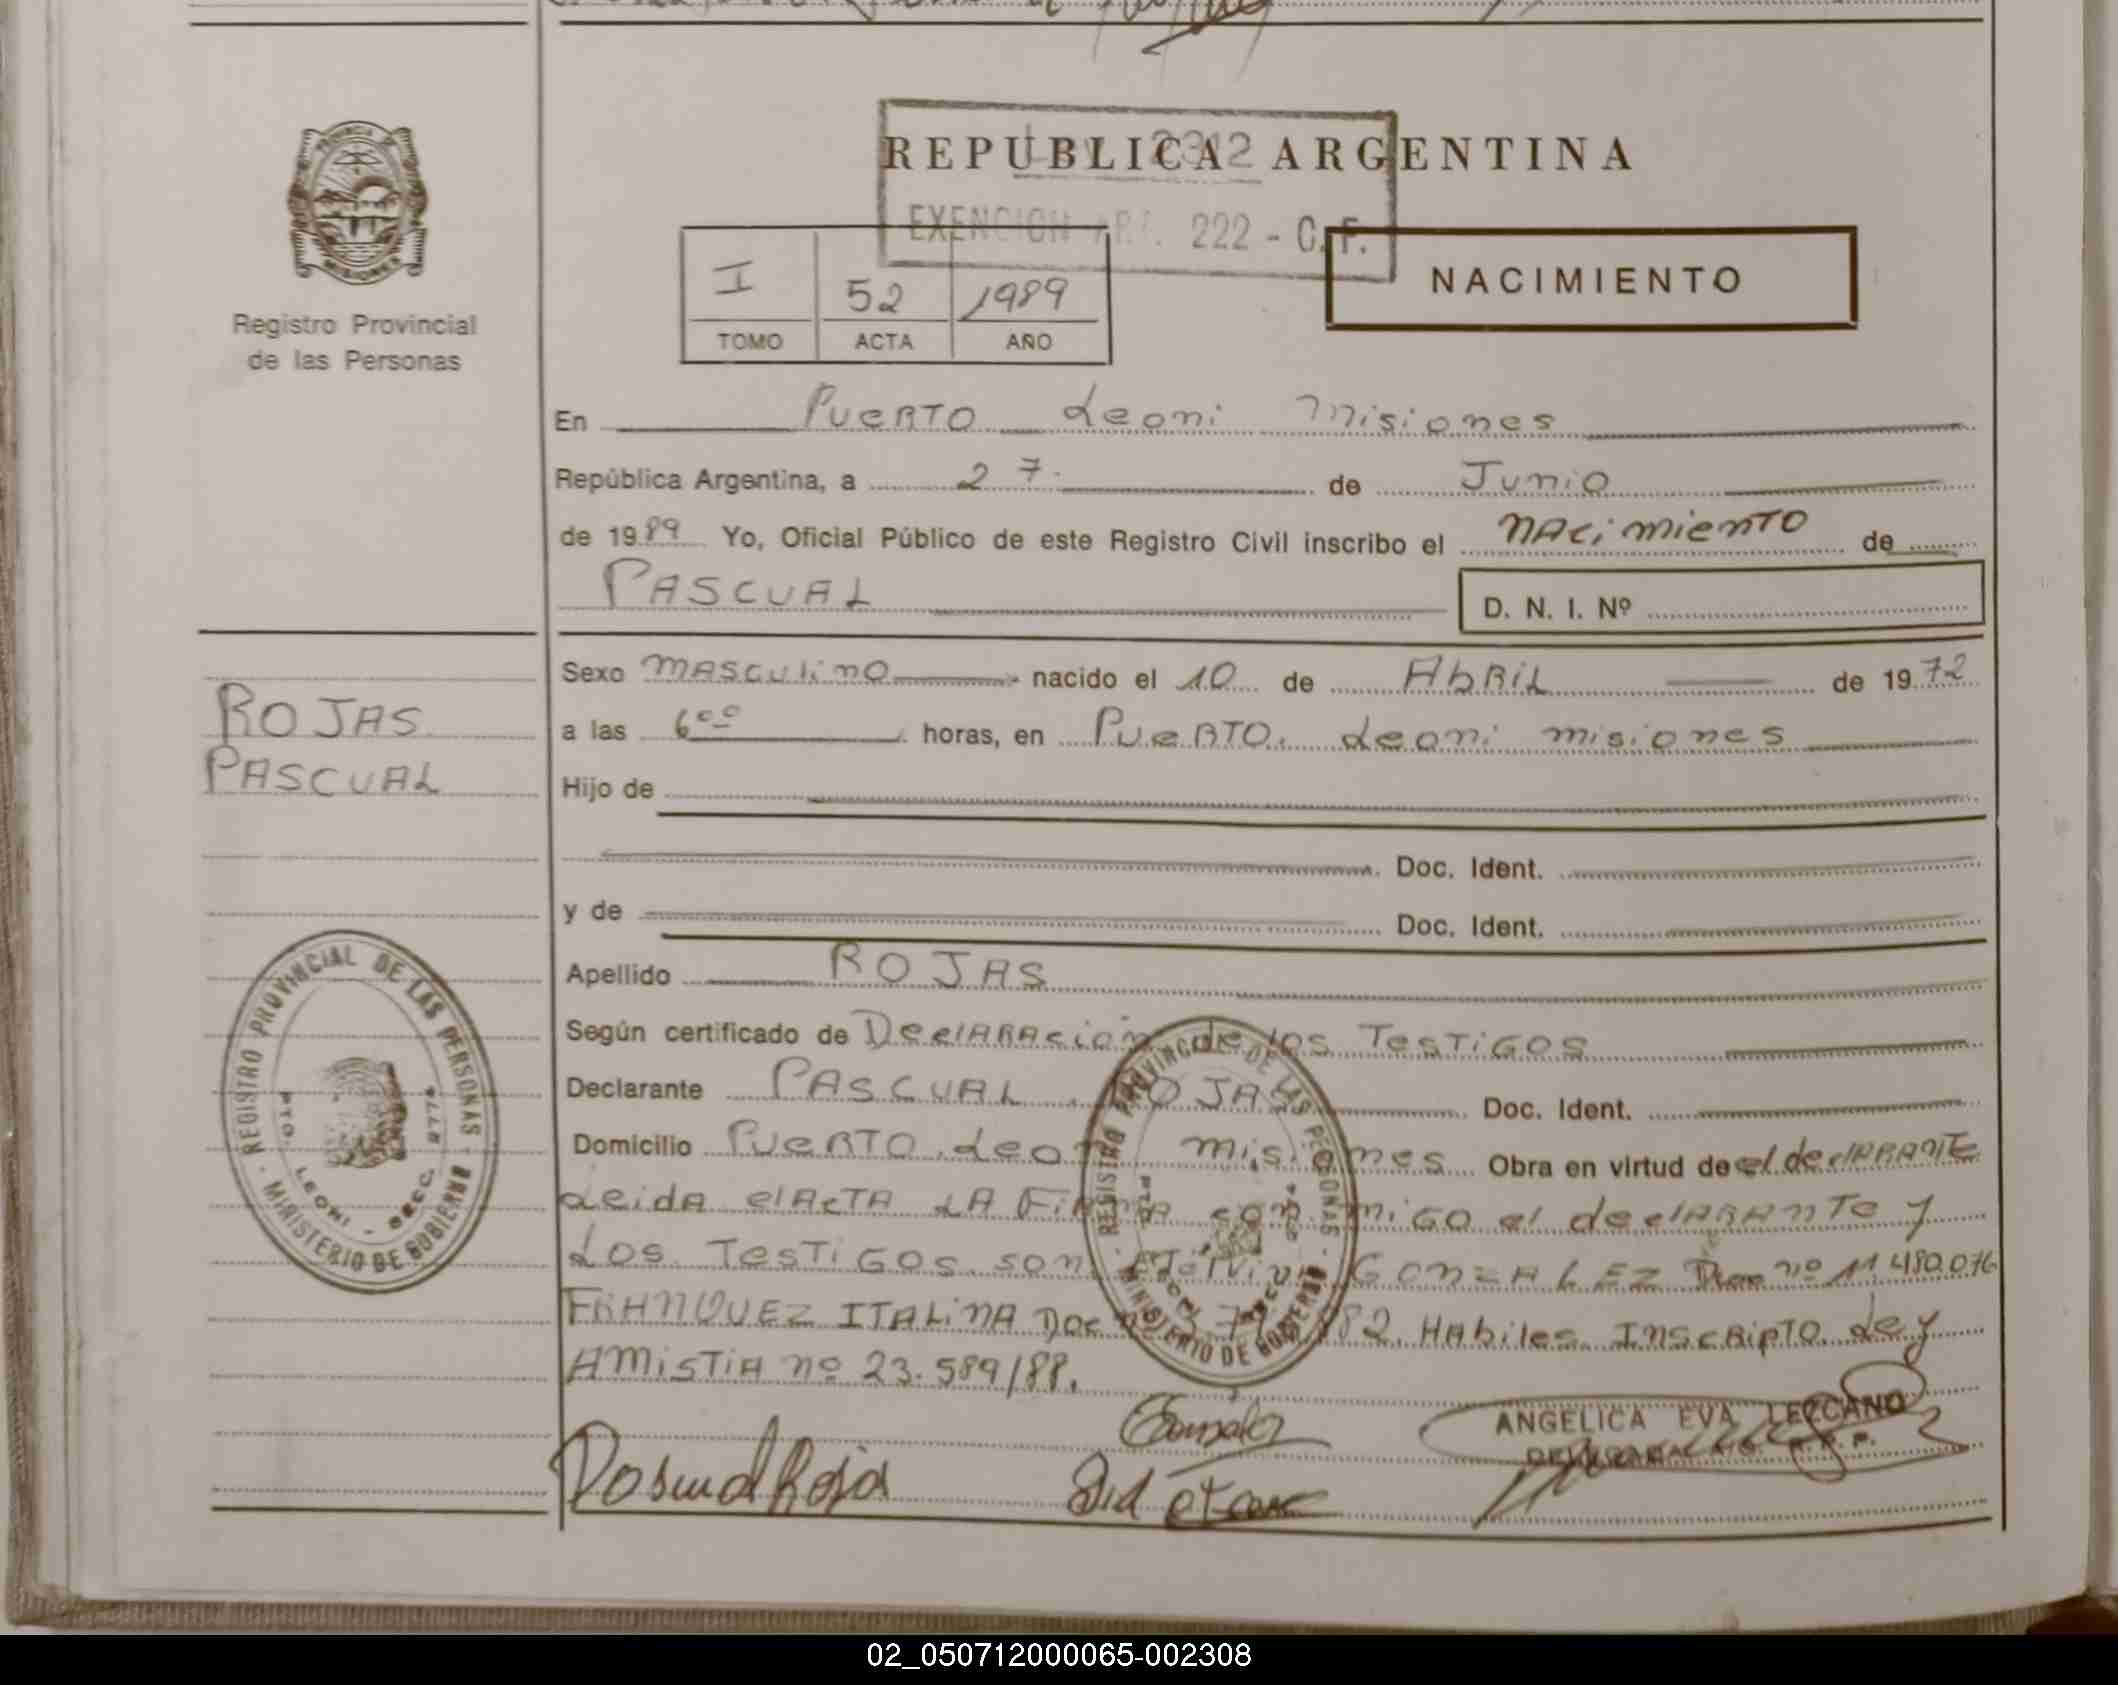 REPUBLICA ARGENTINA
EXENCION ART. 222 - C. F.
NACIMIENTO
I 52 1989
TOMO ACTA AÑO
PROVINCIA DE
MISIONES
Registro Provincial
de las Personas
En Puerto Leoni Misiones
República Argentina, a 27 de Junio
de 1989 Yo, Oficial Público de este Registro Civil inscribo el nacimiento de
PASCUAL
D. N. I. Nº
ROJAS
PASCUAL
Sexo masculino nacido el 10 de Abril de 1972
a las 6 00 horas, en Puerto Leoni misiones
Hijo de
Doc. Ident.
y de Doc. Ident.
Apellido ROJAS
Según certificado de Declaración de los Testigos
Declarante PASCUAL ROJAS Doc. Ident.
Domicilio Puerto Leoni misiones Obra en virtud de el declarante
Leida el acta la Firma conmigo el declarante y
Los Testigos son GONZALEZ Doc nº 11.480.076
FRANQUEZ ITALINA Doc 82 Habiles Inscripto Ley
AMISTIA nº 23.589/88.
REGISTRO PROVINCIAL DE LAS PERSONAS
PTO. LEONI - SECC.
MINISTERIO DE GOBIERNO
REGISTRO PROVINCIAL DE LAS PERSONAS
MINISTERIO DE GOBIERNO
ANGELICA EVA LEZCANO
R. P. P.
02_050712000065-002308